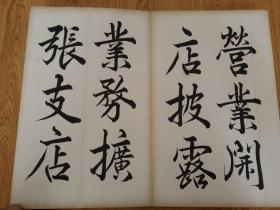 營業開
店披露
業務擴
張支店